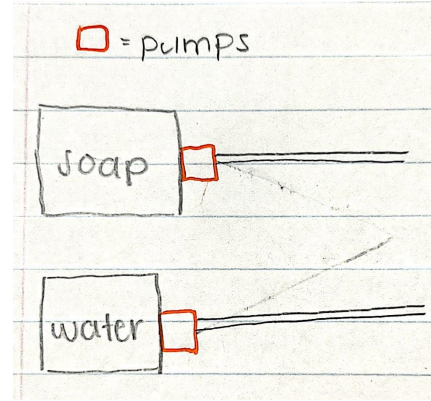 = pumps
soap
water